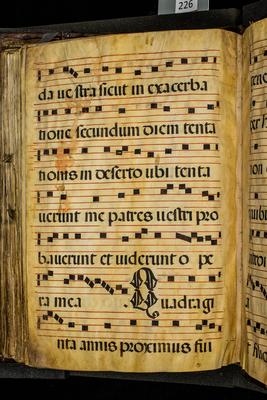 226
da vestra sicut in exacerba
tione secundum diem tenta
tionis in deserto ubi tenta
uerunt me patres uestri pro
bauerunt et uiderunt o pe
ra mea . Quadragi
nta annis proximus fui